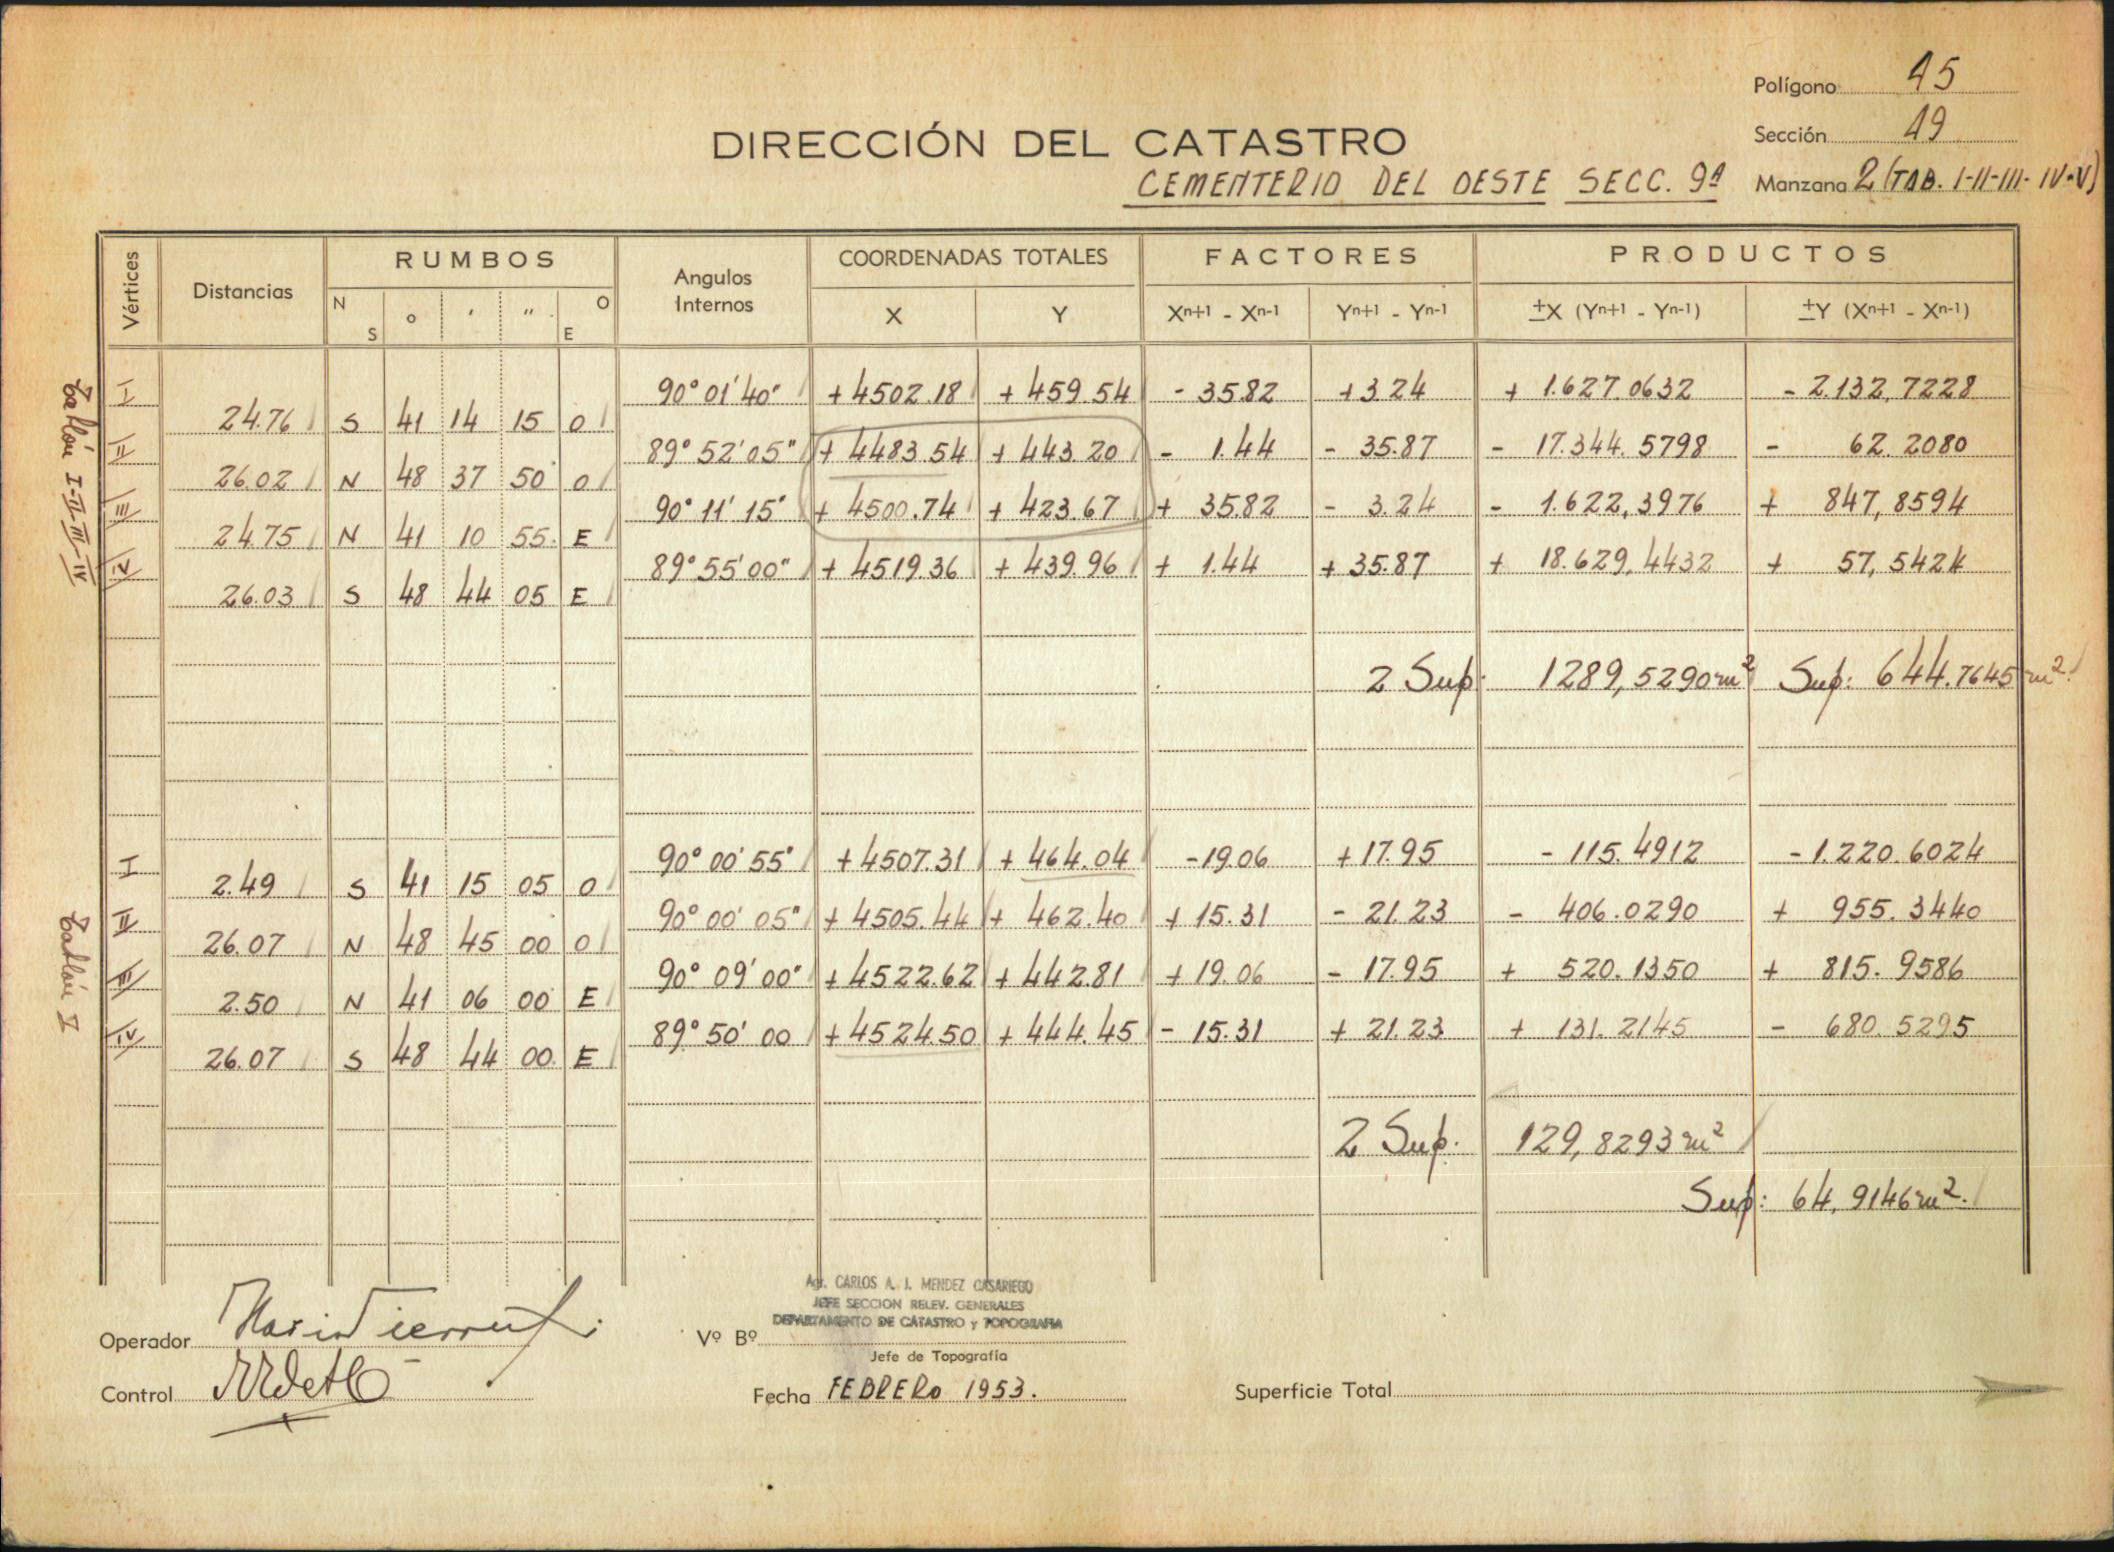 Polígono 45
Sección 19
DIRECCIÓN DEL CATASTRO
CEMENTERIO DEL OESTE SECC. 9ª Manzana 2 (TAB. I-II-III-IV-V)
Vértices Distancias RUMBOS Angulos Internos COORDENADAS TOTALES FACTORES PRODUCTOS
N S ° ' " O E X Y Xn+1 - Xn-1 Yn+1 - Yn-1 ±X (Yn+1 - Yn-1) ±Y (Xn+1 - Xn-1)
Tablón I-II-III-IV
I 90° 01' 40" + 4502.18 + 459.54 - 35.82 + 3.24 + 1.627.0632 - 2.132,7228
24.76 S 41 14 15 O
II 89° 52' 05" + 4483.54 + 443.20 - 1.44 - 35.87 - 17.344.5798 - 62.2080
26.02 N 48 37 50 O
III 90° 11' 15" + 4500.74 + 423.67 + 35.82 - 3.24 - 1.622,3976 + 847,8594
24.75 N 41 10 55 E
IV 89° 55' 00" + 4519.36 + 439.96 + 1.44 + 35.87 + 18.629,4432 + 57,5424
26.03 S 48 44 05 E
2 Sup: 1289,5290 m² Sup: 644.7645 m²
Tablón V
I 90° 00' 55" + 4507.31 + 464.04 - 19.06 + 17.95 - 115.4912 - 1.220.6024
2.49 S 41 15 05 O
II 90° 00' 05" + 4505.44 + 462.40 + 15.31 - 21.23 - 406.0290 + 955.3440
26.07 N 48 45 00 O
III 90° 09' 00" + 4522.62 + 442.81 + 19.06 - 17.95 + 520.1350 + 815.9586
2.50 N 41 06 00 E
IV 89° 50' 00 + 4524.50 + 444.45 - 15.31 + 21.23 + 131.2145 - 680.5295
26.07 S 48 44 00 E
2 Sup. 129,8293 m²
Sup: 64,9146 m².
Agr. CARLOS A. J. MENDEZ CASARIEGO
JEFE SECCION RELEV. GENERALES
DEPARTAMENTO DE CATASTRO y TOPOGRAFIA
Operador Vº Bº
Jefe de Topografía
Control Fecha FEBRERO 1953. Superficie Total